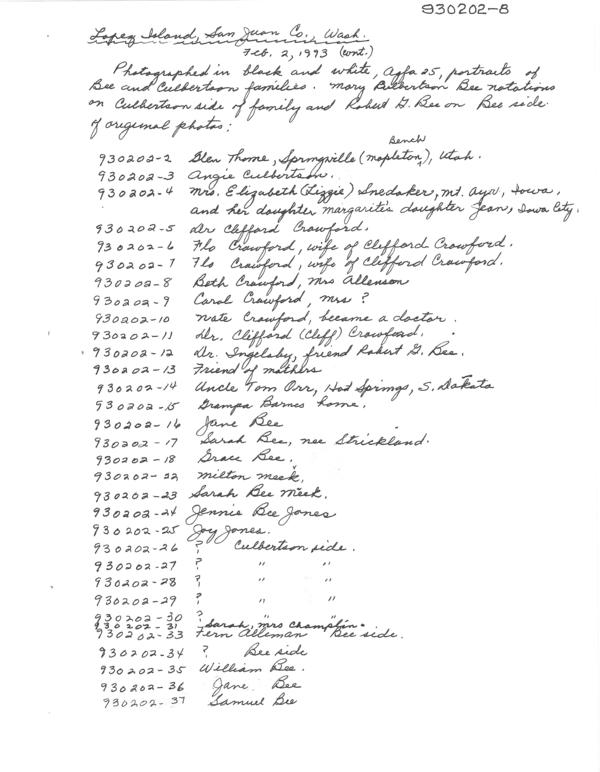 930202-8
Lopez Island, San Juan Co., Wash.
Feb. 2, 1993 (cont.)
Photographed in black and white, Agfa 25, portraits of
Bee and Culbertson families. Mary Culbertson Bee notations
on Culbertson side of family and Robert G. Bee on Bee side
of original photos:
Bench
930202-2 Glen Thorne, Springville (Mapleton), Utah.
930202-3 Angie Culbertson.
930202-4 Mrs. Elizabeth (Lizzie) Snedaker, Mt. Ayr, Iowa,
and her daughter Margarite's daughter Jean, Iowa City.
930202-5 Dr Clifford Crawford.
930202-6 Flo Crawford, wife of Clifford Crawford.
930202-7 Flo Crawford, wife of Clifford Crawford.
930202-8 Beth Crawford, Mrs Allenson
930202-9 Carol Crawford, Mrs ?
930202-10 Nate Crawford, became a doctor.
930202-11 Dr. Clifford (Cliff) Crawford.
930202-12 Dr. Ingelsby, friend Robert G. Bee.
930202-13 Friend of mothers
930202-14 Uncle Tom Orr, Hot Springs, S. Dakota
930202-15 Grampa Barnes home.
930202-16 Jane Bee
930202-17 Sarah Bee, nee Strickland.
930202-18 Grace Bee.
930202-22 Milton Meek.
930202-23 Sarah Bee Meek.
930202-24 Jennie Bee Jones
930202-25 Joy Jones.
930202-26 ? Culbertson side.
930202-27 ? " "
930202-28 ? " "
930202-29 ? " "
930202-30 ?
930202-31 "Sarah, Mrs Champlin."
930202-33 Fern Alleman Bee side.
930202-34 ? Bee side
930202-35 William Bee.
930202-36 Jane Bee
930202-37 Samuel Bee